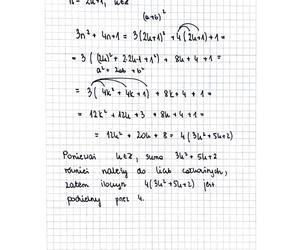 n = 2k+1, k∈ℤ
(a+b)²
3n² + 4n + 1 = 3(2k+1)² + 4(2k+1) + 1 =
= 3((2k)² + 2·2k·1 + 1²) + 8k + 4 + 1 =
a² + 2ab + b²
= 3(4k² + 4k + 1) + 8k + 4 + 1 =
= 12k² + 12k + 3 + 8k + 4 + 1 =
= 12k² + 20k + 8 = 4(3k² + 5k + 2)
Ponieważ k∈ℤ, suma 3k² + 5k + 2
również należy do liczb całkowitych,
zatem iloczyn 4(3k² + 5k + 2) jest
podzielny przez 4.